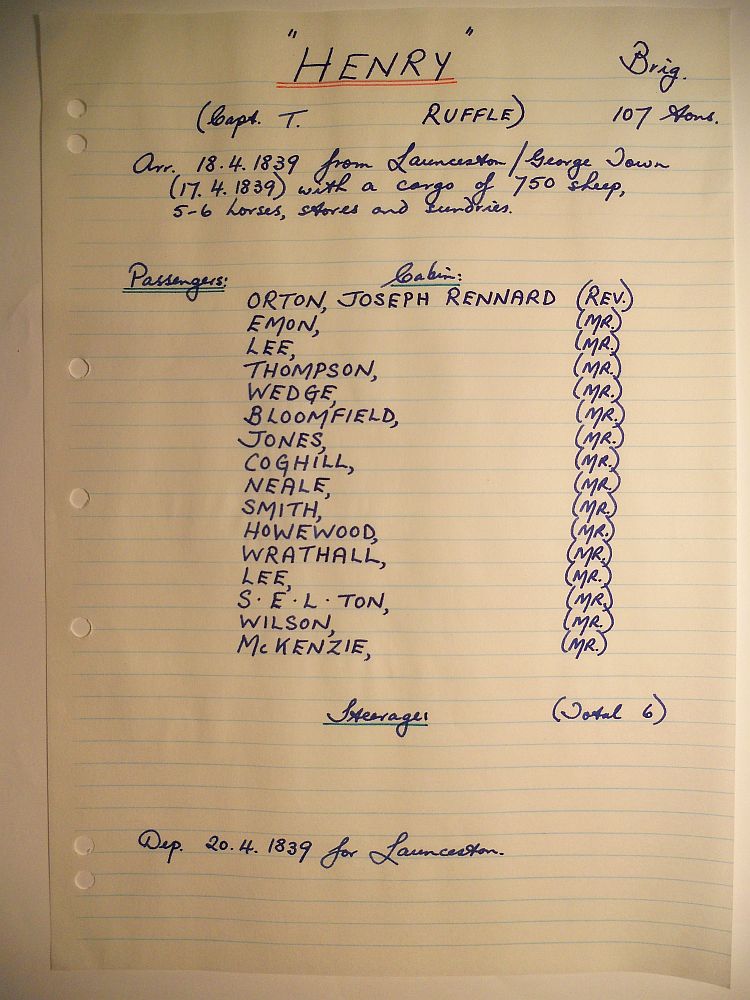 "HENRY" Brig.
(Capt. T. RUFFLE) 107 Tons.
Arr. 18.4.1839 from Launceston/George Town
(17.4.1839) with a cargo of 750 sheep,
5-6 horses, stores and sundries.
Passengers: Cabin:
ORTON, JOSEPH RENNARD (REV.)
EMON, (MR.)
LEE, (MR.)
THOMPSON, (MR.)
WEDGE, (MR.)
BLOOMFIELD, (MR.)
JONES, (MR.)
COGHILL, (MR.)
NEALE, (MR.)
SMITH, (MR.)
HOWEWOOD, (MR.)
WRATHALL, (MR.)
LEE, (MR.)
S·E·L·TON, (MR.)
WILSON, (MR.)
McKENZIE, (MR.)
Steerage: (Total 6)
Dep. 20.4.1839 for Launceston.